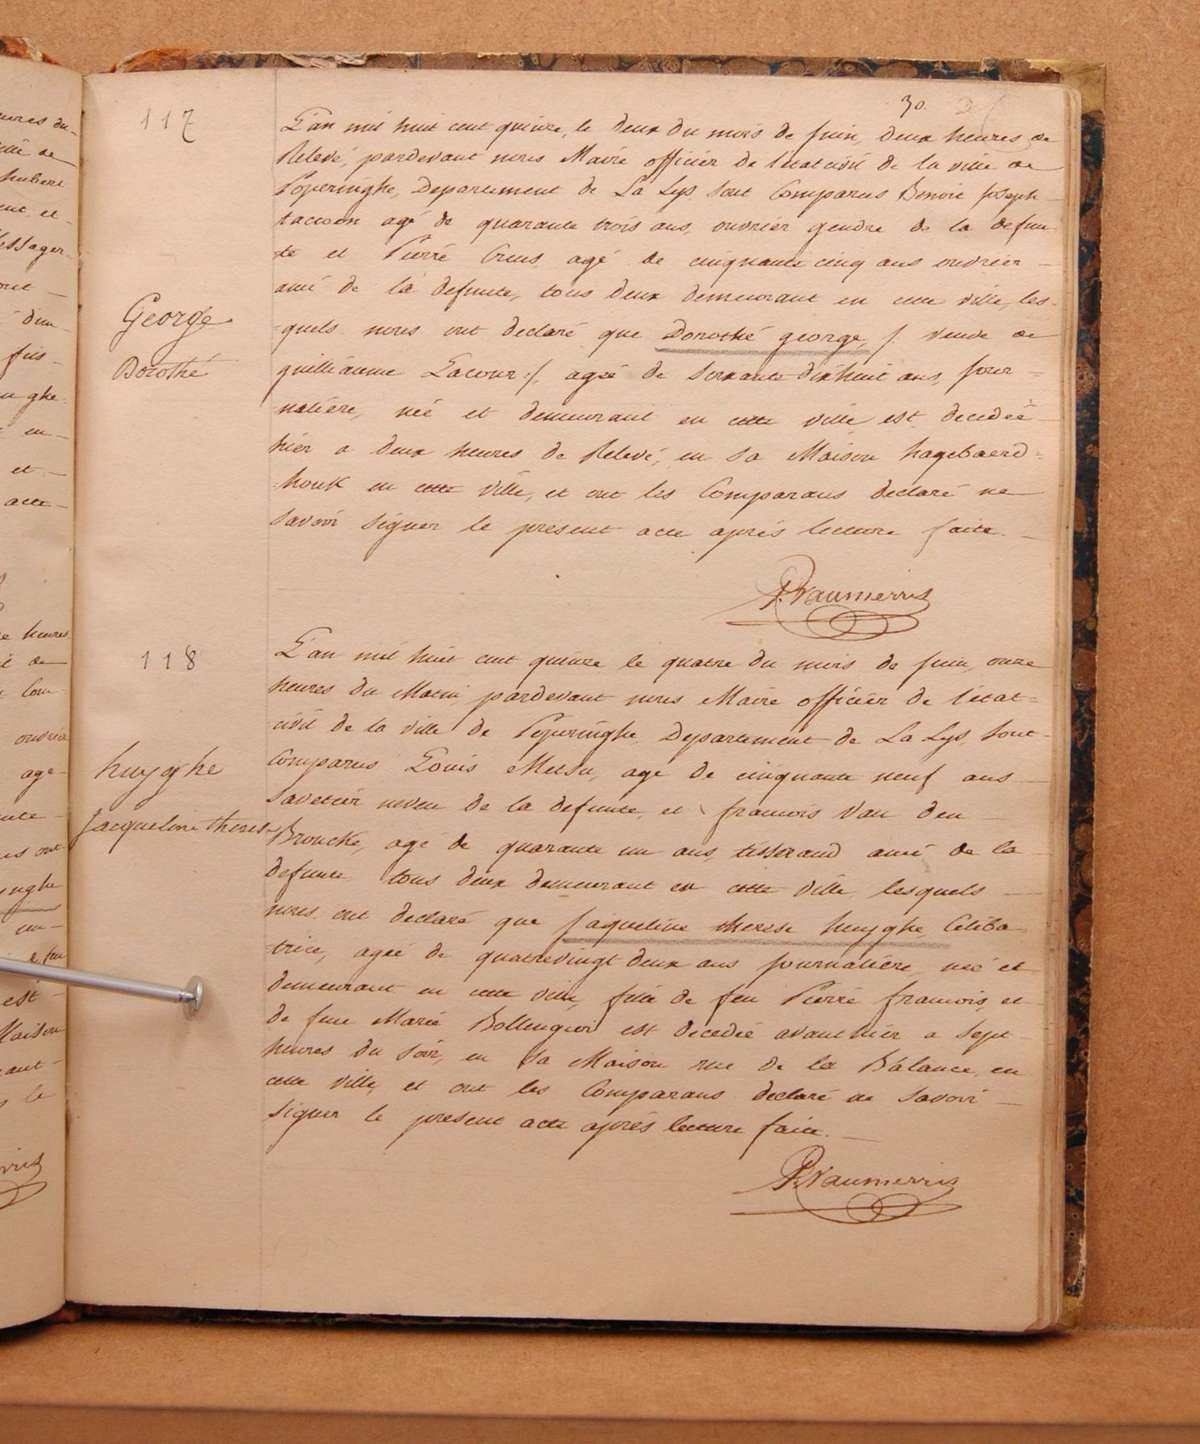 30.
117
George
Dorothé
L'an mil huit cent quinze, le deux du mois de Juin, deux heures de
Relevé, pardevant nous Maire officier de l'état civil de la ville de
Poperinghe, Departement de La Lys, sont Comparus Benoit Joseph
taccoen agé de quarante trois ans, ouvrier gendre de la defun
te et Pierré Creus, agé de cinquante cinq ans ouvrier
ami de la defunte, tous deux demeurant en cette ville, les-
quels nous ont declaré que Dorothé george, /: veuve de
guilliaume Lacour :/, ageé de soixante dixhuit ans, jour=
naliére, neé et demeurant en cette ville est decedeé
hier a deux heures de Relevé, en sa Maison hagebaerd=
houk en cette ville, et ont les Comparans declaré ne
savoir signer le present acte aprés lecture faite.
P. Vaumerris
118
huyghe
Jacqueline therese
L'an mil huit cent quinze le quatre du mois de Juin, onze
heures du Matin, pardevant nous Maire officier de l'état=
civil de la ville de Poperinghe, Departement de La Lys, sont
Comparus Louis Mersu, age de cinquante neuf ans
savetier neveu de la defunte, et francois Van den
Broucke, agé de quarante un ans, tisserand ami de la
defunte tous deux demeurant en cette ville lesquels
nous ont declaré que Jaqueline therese huyghe Celiba
trice, ageé de quatrevingt deux ans journaliére, neé et
demeurant en cette ville, fille de feu Pierré francois, et
de feue Marie Bollengier est decedeé avant hier a sept
heures du soir, en sa Maison rue de la Balance, en
cette ville, et ont les Comparans declaré ne savoir
signer le present acte aprés lecture faite.
P. Vaumerris